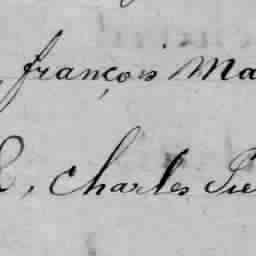 françois Ma
, Charles Pie